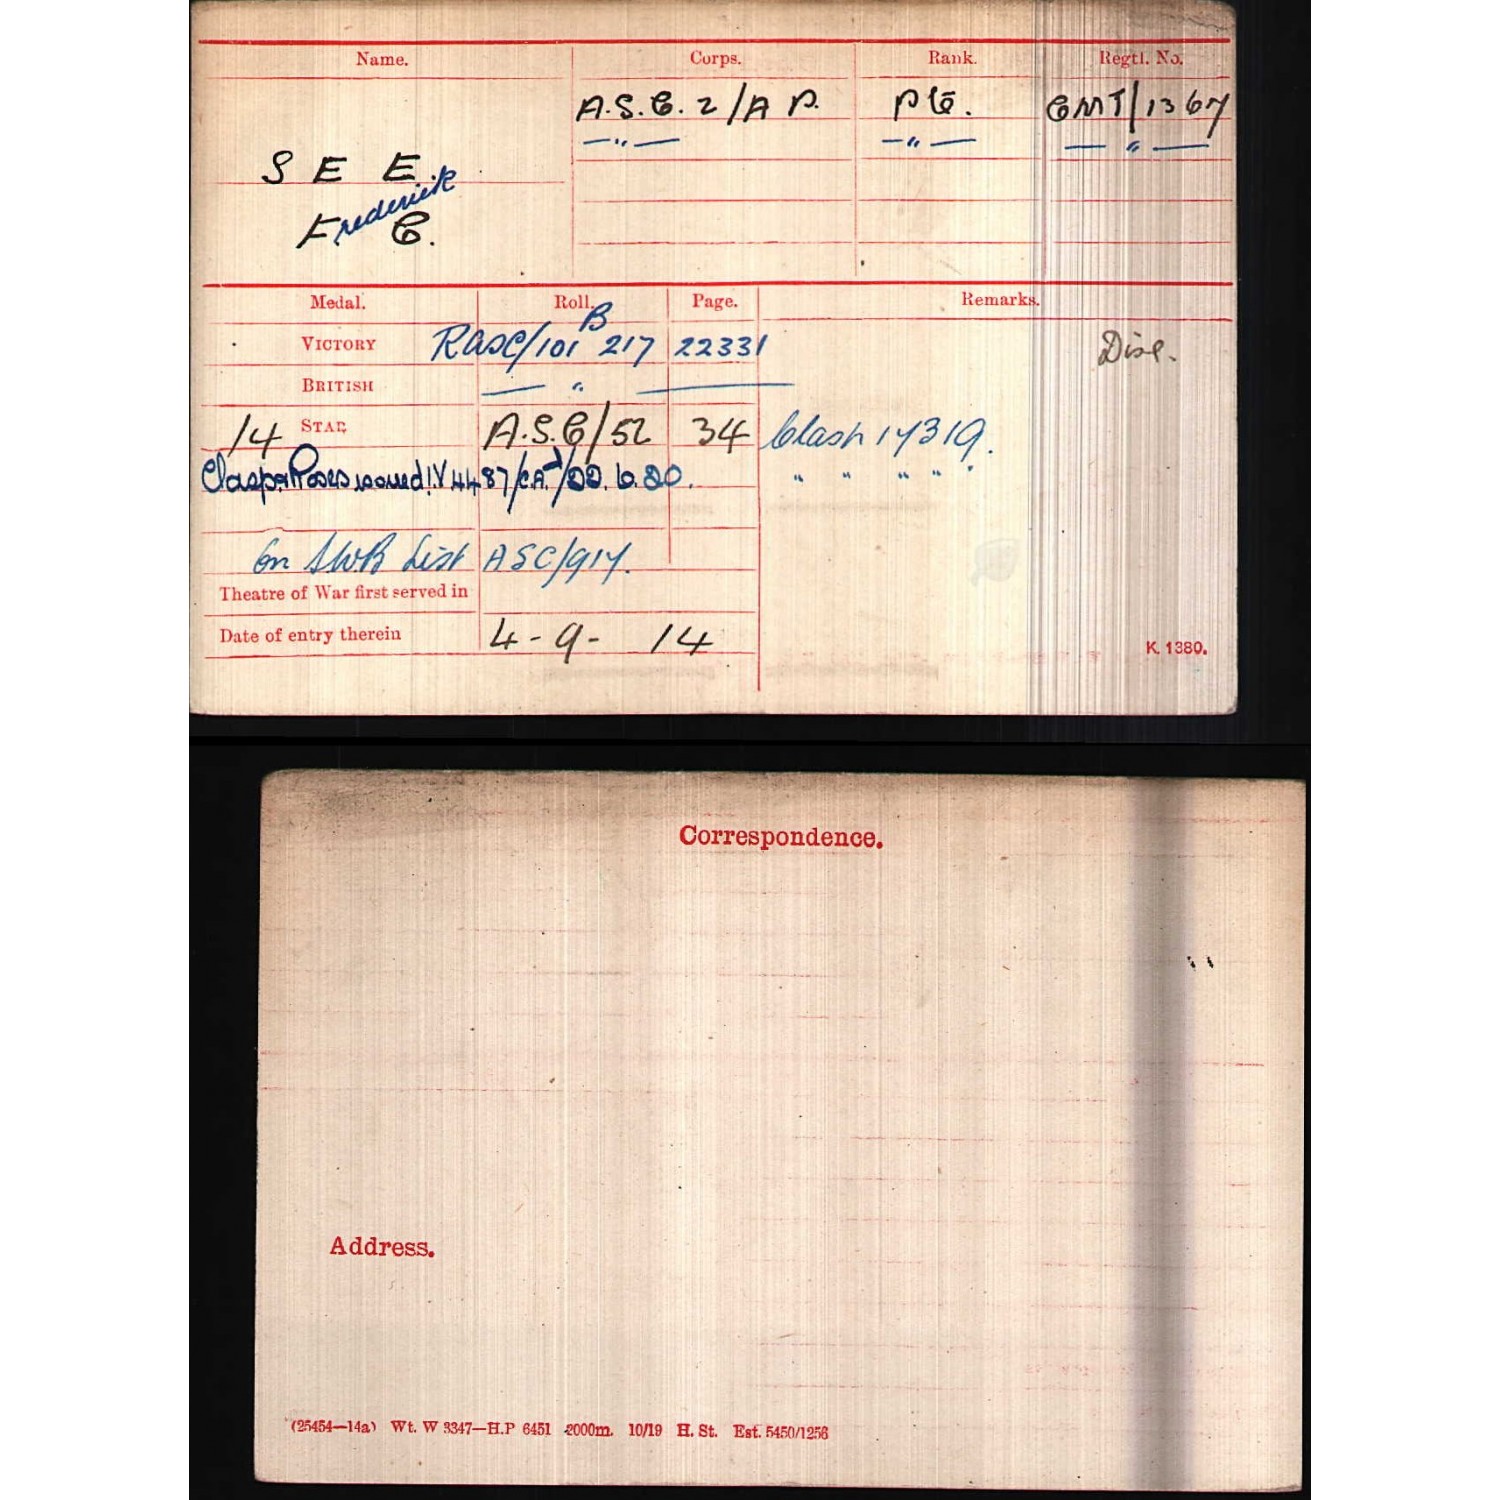 Name. Corps. Rank. Regtl. No.
A.S.C. 2/A P. Pte. CMT/1367
—"— —"— — " —
S E E.
Frederick C.
Medal. Roll. Page. Remarks.
VICTORY RASC/101 B 217 22331 Disc.
BRITISH — " —
14 STAR A.S.C/52 34 Clasp 17319.
Clasp & Roses issued IV 4487/CA/22.6.20. " " " "
On SWB List ASC/917.
Theatre of War first served in
Date of entry therein 4-9-14
K. 1380.
Correspondence.
Address.
(25454—14a) Wt. W 3347—H.P 6451 2000m. 10/19 H. St. Est. 5450/1256